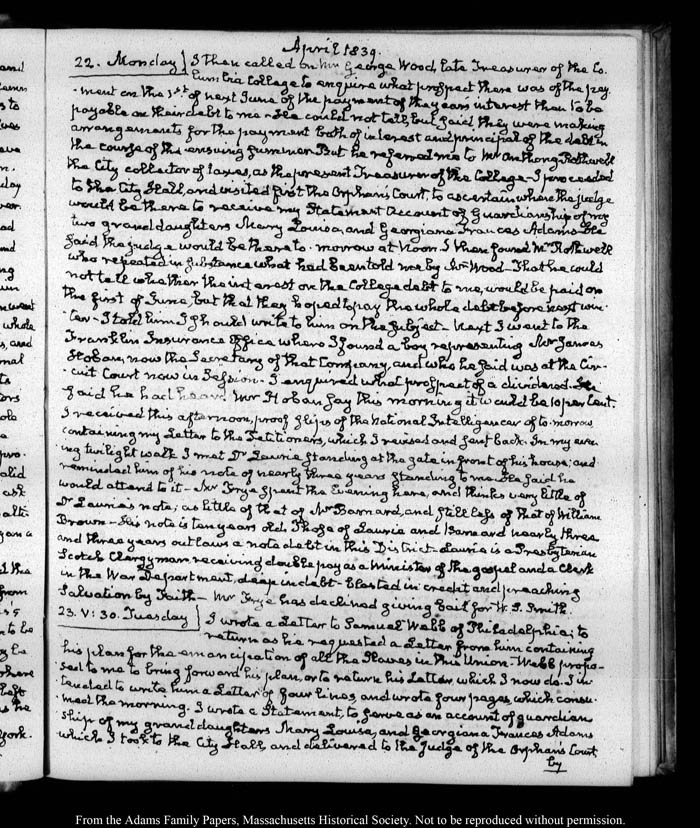 April 1839.
22. Monday } I then called on Mr George Wood, late Treasurer of the Co-
lumbia College to enquire what prospect there was of the pay-
ment on the 1st of next June of the payment of the years interest then to be
payable on their debt to me. He could not tell, but said they were making
arrangements for the payment both of interest and principal of the debt in
the course of the ensuing summer. But he referred me to Mr Anthony Rothwell
the City collector of taxes, as the present Treasurer of the College. I proceeded
to the City Hall, and visited first the Orphan's Court, to ascertain where the judge
would be there to receive my Statement Account of Guardianship of my
two granddaughters Mary Louisa, and Georgiana Frances Adams. He
said the judge would be there to-morrow at Noon. I then found Mr Rothwell
who repeated in substance what had been told me by Mr Wood- That he could
not tell whether the interest on the College debt to me, would be paid on
the first of June, but that they hoped to pay the whole debt before next win-
ter- I told him I should write to him on the subject- Next I went to the
Franklin Insurance Office where I found a boy representing Mr James
Hoban, now the Secretary of that Company, and who he said was at the Cir-
cuit Court now in Session. I enquired what prospect of a dividend. He
said he had heard Mr Hoban say this morning it would be 10 per Cent.
I received this afternoon, proof slips of the National Intelligencer of to-morrow
containing my Letter to the Petitioners, which I revised and sent back. In my even-
ing twilight walk I met Dr Laurie standing at the gate in front of his house; and
reminded him of his note of nearly three years standing to me. He said he
would attend to it- Mr Frye spent the Evening here, and thinks very little of
Dr Laurie's note; as little of that of Mr Barnard, and still less of that of William
Brown- His note is ten years old. Those of Laurie and Barnard nearly three
and three years outlaws a note debt in this District- Laurie is a Presbyterian
Scotch Clergyman receiving double pay as a Minister of the gospel and a Clerk
in the War Department, deep in debt- blasted in credit and preaching
Salvation by Faith- Mr Frye has declined giving bail for W. S. Smith.
23. V: 30. Tuesday } I wrote a Letter to Samuel Webb of Philadelphia; to
return as he requested a Letter from him containing
his plan for the emancipation of all the Slaves in this Union- Webb propo-
sed to me to bring forward his plan, or to return his Letter, which I now do. I in-
tended to write him a Letter of four lines, and wrote four pages, which consu-
med the morning. I wrote a Statement, to serve as an account of guardian
ship of my granddaughters Mary Louisa, and Georgiana Frances Adams
which I took to the City Hall, and delivered to the Judge of the Orphans Court
by
From the Adams Family Papers, Massachusetts Historical Society. Not to be reproduced without permission.